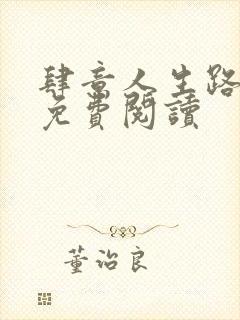 肆意人生路
免費閱讀
董治良